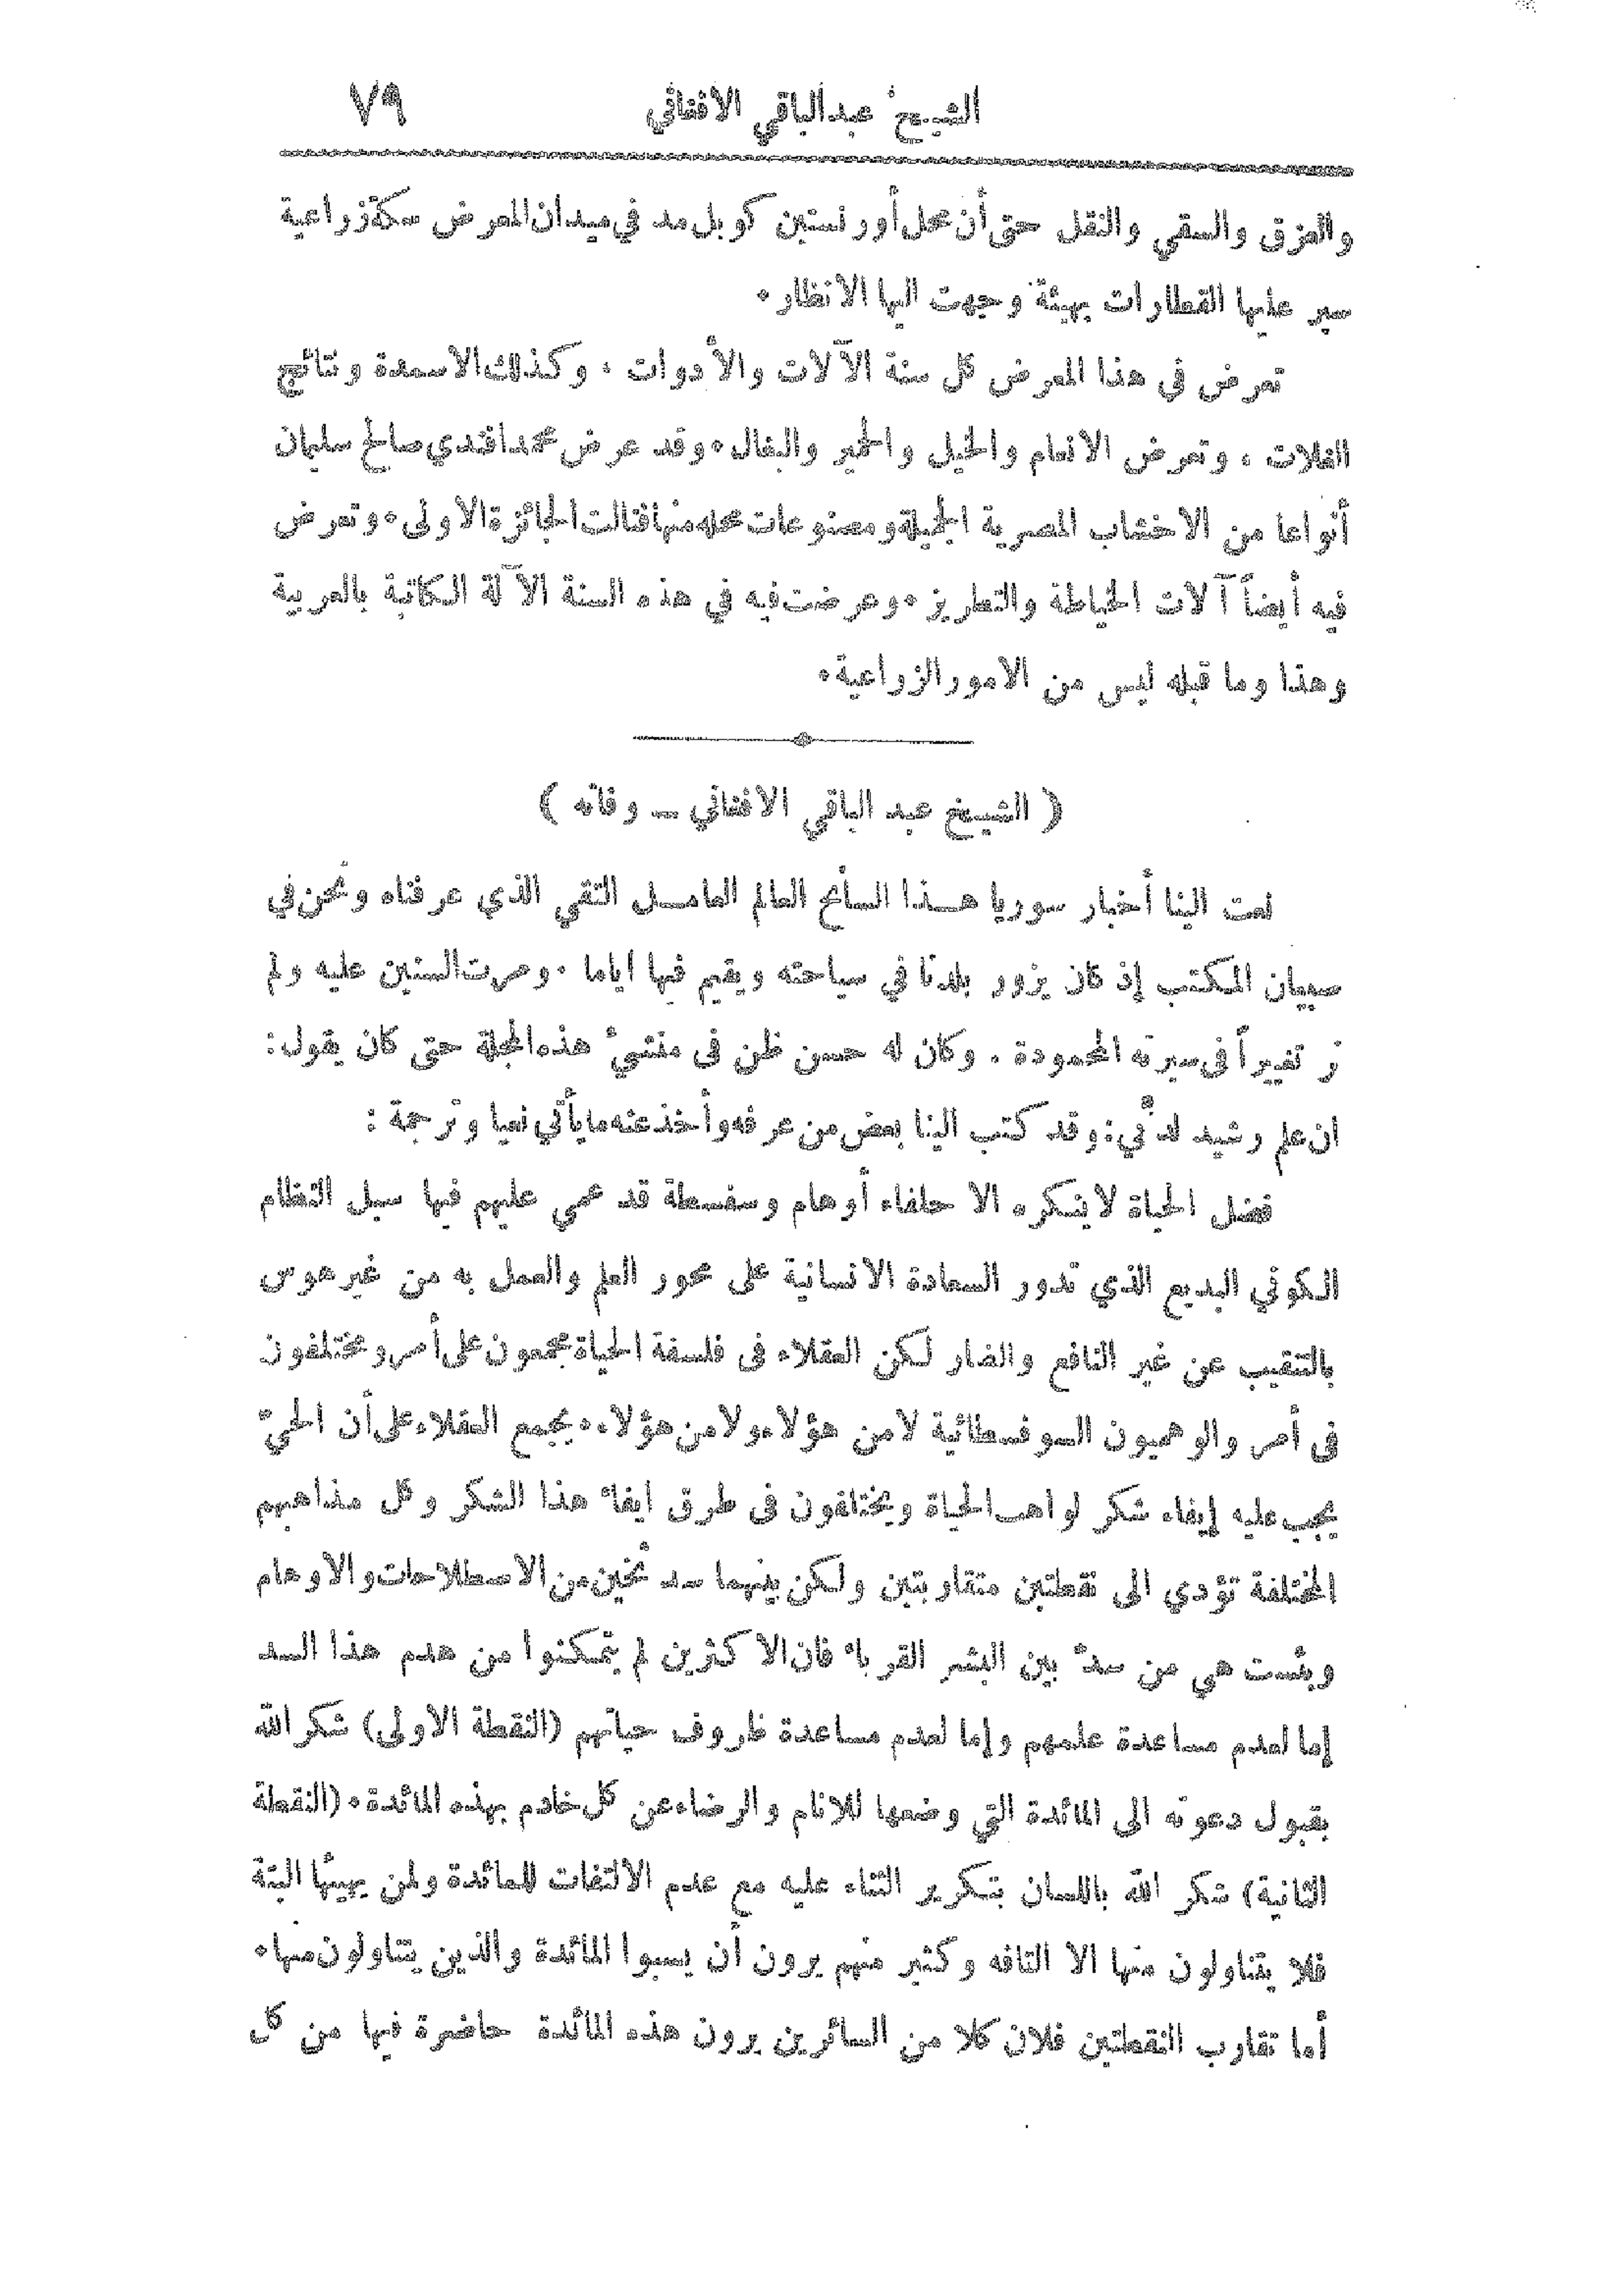 الشيخ عبدالباقي الافغاني ٧٩
والعزق والسقي والنقل حتى أن محل أورنستين كوبل مد في ميدان المعرض سكة زراعية
سير عليها القطارات بهيئة وجهت اليها الانظار.
تعرض في هذا المعرض كل سنة الآلات والأدوات ، وكذلك الاسمدة ونتائج
الغلات ، وتعرض الانعام والخيل والحمير والبغال. وقد عرض محمد افندي صالح سليمان
أنواعا من الاخشاب المصرية الجميلة ومصنوعات محله منها فنالت الجائزة الاولى. وتعرض
فيه أيضاً آلات الخياطة والتطريز. وعرضت فيه في هذه السنة الآلة الكاتبة بالعربية
وهذا وما قبله ليس من الامور الزراعية.
( الشيخ عبد الباقي الافغاني ـ وفاته )
نعت الينا أخبار سوريا هـذا السائح العالم العامـل التقي الذي عرفناه ونحن في
صبيان المكتب إذ كان يزور بلدنا في سياحته ويقيم فيها اياما . ومرت السنين عليه ولم
نر تغييراً في سيرته المحمودة . وكان له حسن ظن في منشئ هذه المجلة حتى كان يقول :
ان علم رشيد لدنّي : وقد كتب الينا بعض من عرفه وأخذ عنه ما يأتي نعيا وترجمة :
فضل الحياة لا ينكره الا حلفاء أوهام وسفسطة قد عمي عليهم فيها سبل النظام
الكوني البديع الذي تدور السعادة الانسانية على محور العلم والعمل به من غير هوس
بالتنقيب عن غير النافع والضار لكن العقلاء في فلسفة الحياة مجمعون على أمر ومختلفون
في أمر والوهميون السوفسطائية لا من هؤلاء ولا من هؤلاء. يجمع العقلاء على أن الحيّ
يجب عليه إيفاء شكر لواهب الحياة ويختلفون في طرق ايفاء هذا الشكر وكل مذاهبهم
المختلفة تؤدي الى نقطتين متقاربتين ولكن بينهما سد ثخين من الاصطلاحات والاوهام
وبئست هي من سدّ بين البشر القرباء فان الاكثرين لم يتمكنوا من هدم هذا السد
إما لعدم مساعدة علمهم وإما لعدم مساعدة ظروف حياتهم (النقطة الاولى) شكر الله
بقبول دعوته الى المائدة التي وضعها للانام والرضاء عن كل خادم بهذه المائدة. (النقطة
الثانية) شكر الله باللسان بتكرير الثناء عليه مع عدم الالتفات للمائدة ولمن يهيئها البتة
فلا يتناولون منها الا التافه وكثير منهم يرون أن يسبوا المائدة والذين يتناولون منها.
أما تقارب النقطتين فلان كلا من السائرين يرون هذه المائدة حاضرة فيها من كل